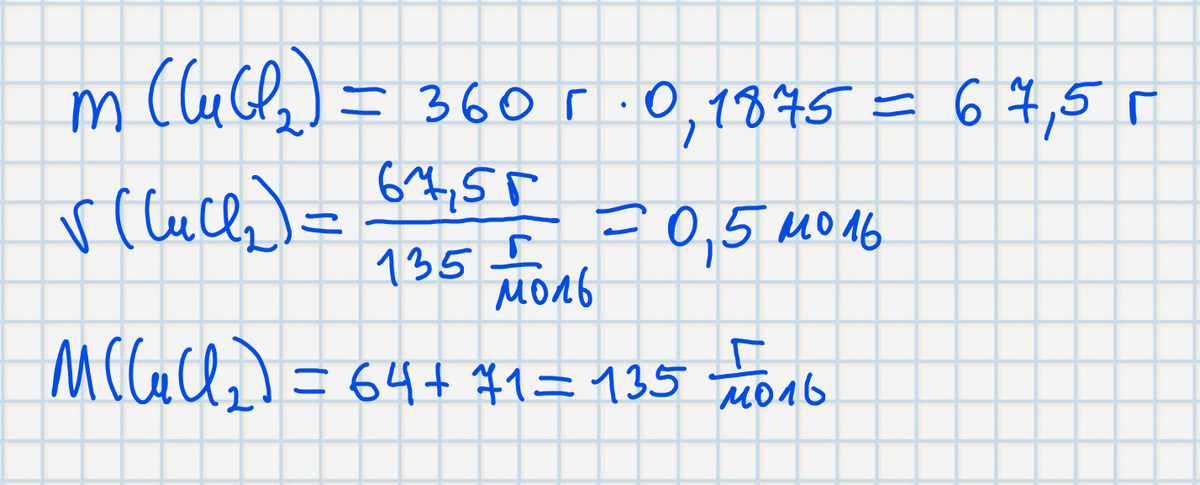 m(CuCl₂) = 360 г · 0,1875 = 67,5 г
ν(CuCl₂) = 67,5 г / 135 г/моль = 0,5 моль
M(CuCl₂) = 64 + 71 = 135 г/моль